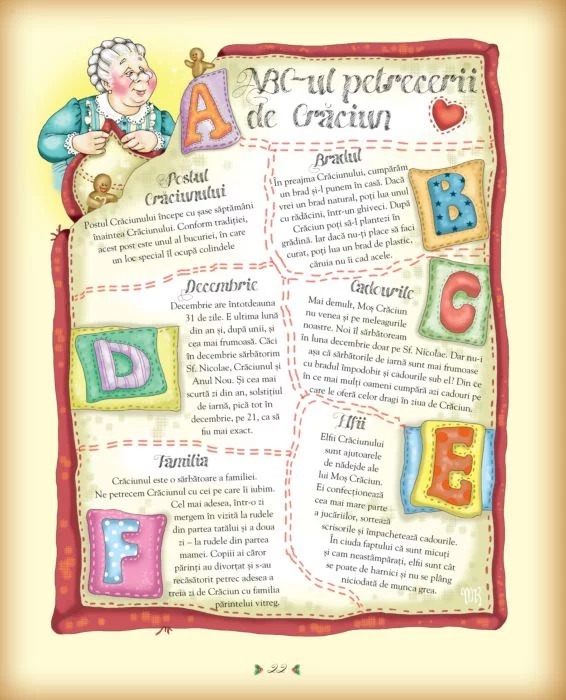 A
ABC-ul petrecerii
de Crăciun
Postul
Crăciunului
Postul Crăciunului începe cu șase săptămâni
înaintea Crăciunului. Conform tradiției,
acest post este unul al bucuriei, în care
un loc special îl ocupă colindele
Bradul
În preajma Crăciunului, cumpărăm
un brad și-l punem în casă. Dacă
vrei un brad natural, poți lua unul
cu rădăcini, într-un ghiveci. După
Crăciun poți să-l plantezi în
grădină. Iar dacă nu-ți place să faci
curat, poți lua un brad de plastic,
căruia nu îi cad acele.
B
Decembrie
Decembrie are întotdeauna
31 de zile. E ultima lună
din an și, după unii, și
cea mai frumoasă. Căci
în decembrie sărbătorim
Sf. Nicolae, Crăciunul și
Anul Nou. Și cea mai
scurtă zi din an, solstițiul
de iarnă, pică tot în
decembrie, pe 21, ca să
fiu mai exact.
D
Cadourile
Mai demult, Moș Crăciun
nu venea și pe meleagurile
noastre. Noi îl sărbătoream
în luna decembrie doar pe Sf. Nicolae. Dar nu-i
așa că sărbătorile de iarnă sunt mai frumoase
cu bradul împodobit și cadourile sub el? Din ce
în ce mai mulți oameni cumpără azi cadouri pe
care le oferă celor dragi în ziua de Crăciun.
C
Familia
Crăciunul este o sărbătoare a familiei.
Ne petrecem Crăciunul cu cei pe care îi iubim.
Cel mai adesea, într-o zi
mergem în vizită la rudele
din partea tatălui și a doua
zi – la rudele din partea
mamei. Copiii ai căror
părinți au divorțat și s-au
recăsătorit petrec adesea a
treia zi de Crăciun cu familia
părintelui vitreg.
F
Elfii
Elfii Crăciunului
sunt ajutoarele
de nădejde ale
lui Moș Crăciun.
Ei confecționează
cea mai mare parte
a jucăriilor, sortează
scrisorile și împachetează cadourile.
În ciuda faptului că sunt micuți
și cam neastâmpărați, elfii sunt cât
se poate de harnici și nu se plâng
niciodată de munca grea.
E
22